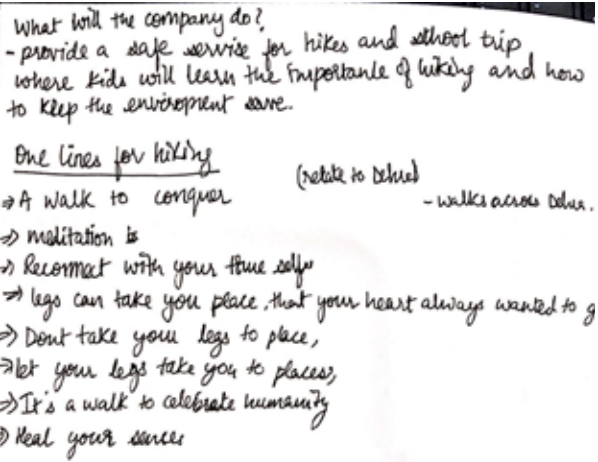 What will the company do?
- provide a safe service for hikes and school trip
where kids will learn the importance of hiking and how
to keep the enviropment save.
One lines for hiking
(relate to Dehu)
⇒ A walk to conquer
- walks across
⇒ meditation is
⇒ Reconnect with your time self
⇒ legs can take you place, that your heart always wanted to g
⇒ Dont take your legs to place,
⇒ let your legs take you to places,
⇒ It's a walk to celebrate humanity
⇒ Heal your sences